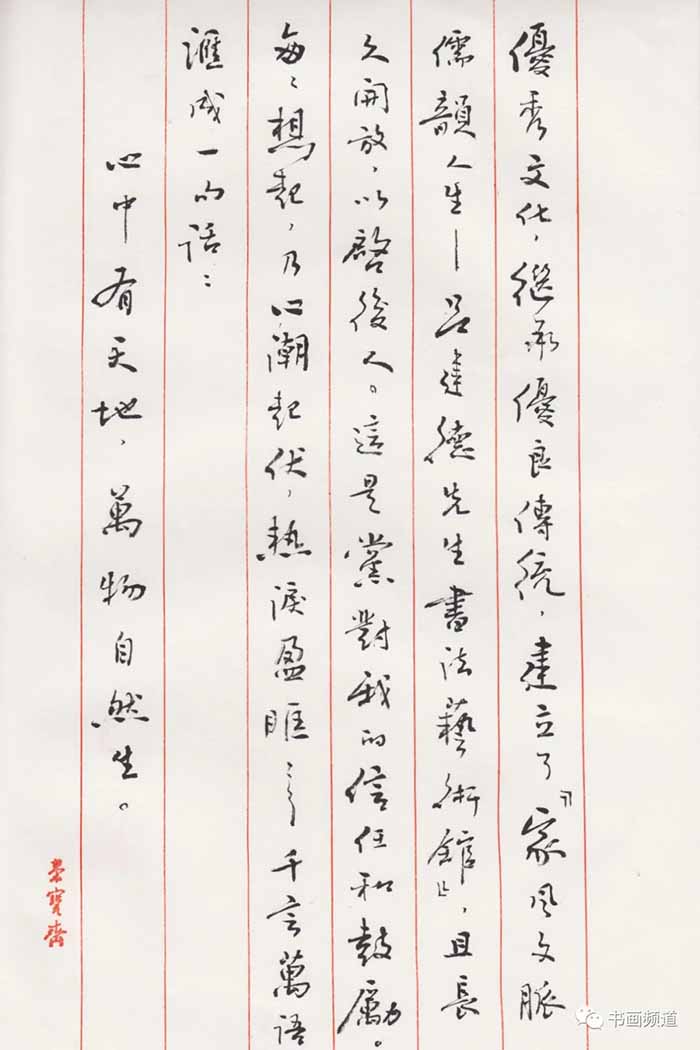 優秀文化，繼承優良傳統，建立了「家风文脈
儒韻人生—吕建德先生書法藝術館」，且長
久開放，以啓後人。這是黨對我的信任和鼓勵。
每々想起，乃心潮起伏，熱淚盈眶 千言萬語
滙成一句話：
心中有天地，萬物自然生。
榮寶齋
书画频道